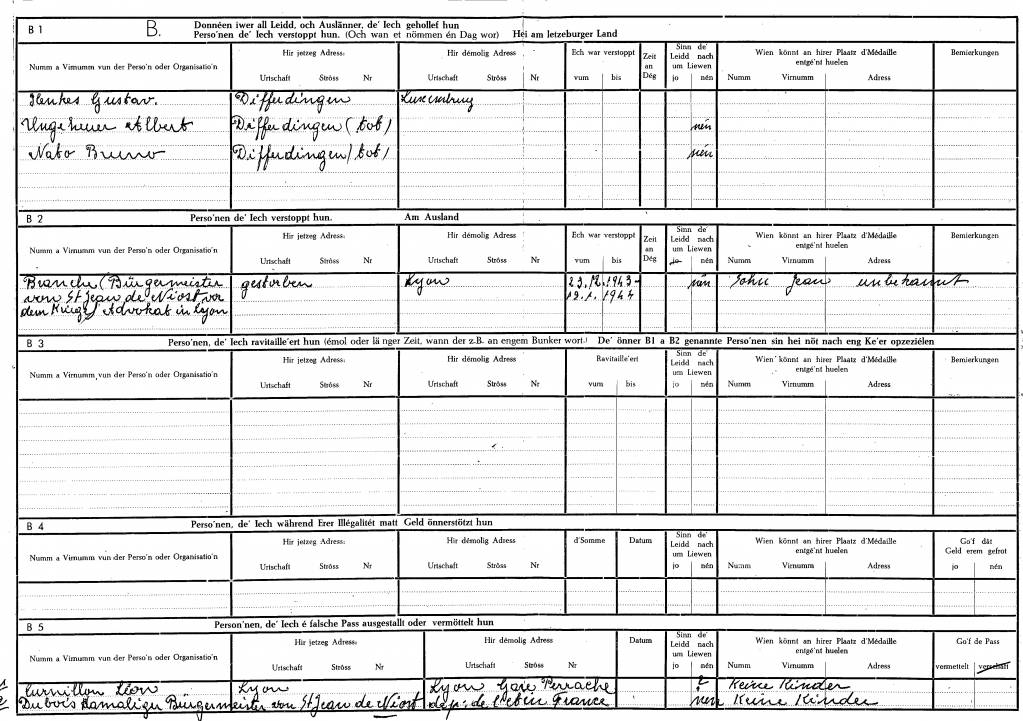 B 1 B. Donnéen iwer all Leidd, och Auslänner, de' Iech gehollef hun
Perso'nen de' Iech verstoppt hun. (Och wan et nömmen én Dag wor) Hei am letzeburger Land
Numm a Virnumm vun der Perso'n oder Organisatio'n
Hir jetzeg Adress: Hir démolig Adress Ech war verstoppt Zeit an Dég Sinn de' Leidd nach um Liewen Wien könnt an hirer Plaatz d'Médaille entgé'nt huelen Bemierkungen
Urtschaft Ströss Nr Urtschaft Ströss Nr vum bis jo nén Numm Virnumm Adress
Henkes Gustav. Differdingen Luxemburg
Ungeheuer Albert Differdingen (tot) nén
Nato Bruno Differdingen (tot) nén
B 2 Perso'nen de' Iech verstoppt hun. Am Ausland
Numm a Virnumm vun der Perso'n oder Organisatio'n
Hir jetzeg Adress: Hir démolig Adress Ech war verstoppt Zeit an Dég Sinn de' Leidd nach um Liewen Wien könnt an hirer Plaatz d'Médaille entgé'nt huelen Bemierkungen
Urtschaft Ströss Nr Urtschaft Ströss Nr vum bis jo nén Numm Virnumm Adress
Branche (Bürgermeister gestorben Lyon 23.12.1943- nén Sohn Jean unbekannt
von St Jean de Niost vor 19.1.1944
dem Kriege) Advokat in Lyon
B 3 Perso'nen, de' Iech ravitaille'ert hun (émol oder lä nger Zeit, wann der z.B. an engem Bunker wort.) De' önner B1 a B2 genannte Perso'nen sin hei nöt nach eng Ke'er opzeziélen
Numm a Virnumm vun der Perso'n oder Organisatio'n
Hir jetzeg Adress: Hir démolig Adress Ravitaille'ert Sinn de' Leidd nach um Liewen Wien könnt an hirer Plaatz d'Médaille entgé'nt huelen Bemierkungen
Urtschaft Ströss Nr Urtschaft Ströss Nr vum bis jo nén Numm Virnumm Adress
B 4 Perso'nen, de' Iech während Erer Illégalitét matt Geld önnerstötzt hun
Numm a Virnumm vun der Perso'n oder Organisatio'n
Hir jetzeg Adress: Hir démolig Adress d'Somme Datum Sinn de' Leidd nach um Liewen Wien könnt an hirer Plaatz d'Médaille entgé'nt huelen Go'f dät Geld erem gefrot
Urtschaft Ströss Nr Urtschaft Ströss Nr jo nén Numm Virnumm Adress jo nén
B 5 Person'nen, de' Iech é falsche Pass ausgestallt oder vermöttelt hun
Numm a Virnumm vun der Perso'n oder Organisatio'n
Hir jetzeg Adress: Hir démolig Adress Datum Sinn de' Leidd nach um Liewen Wien könnt an hirer Plaatz d'Médaille entgé'nt huelen Go'f de Pass
Urtschaft Ströss Nr Urtschaft Ströss Nr jo nén Numm Virnumm Adress vermettelt verschaft
Curnillon Léon Lyon Lyon Gare Perrache ? Keine Kinder
Dubois damaliger Bürgermeister von St Jean de Niost dép: de l'Ain France nen Keine Kinder